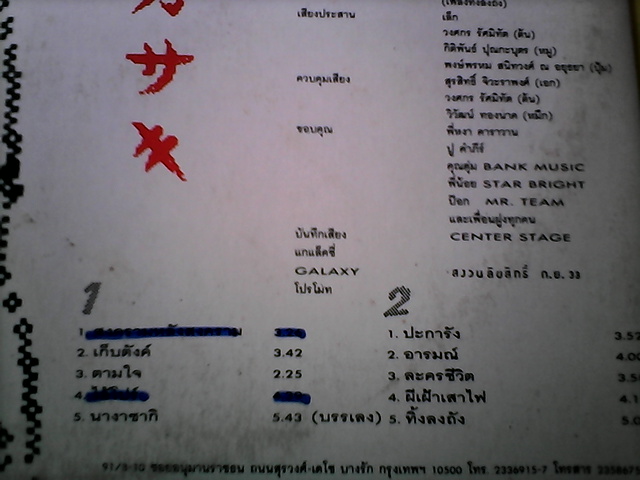 カ
サ
キ
(เพลงทิ้งลงถัง)
เสียงประสาน
เล็ก
วงศกร รัศมิทัต (ต้น)
กิติพันธ์ ปุณกะบุตร (หมู)
พงษ์พรหม สนิทวงศ์ ณ อยุธยา (ปุ้ม)
ควบคุมเสียง
สุรสิทธิ์ จิวะราพงศ์ (เอก)
วงศกร รัศมิทัต (ต้น)
วิวัฒน์ ทองนาค (หมึก)
ขอบคุณ
พี่หงา คาราวาน
ปู คำภีร์
คุณตุ่ม BANK MUSIC
พี่น้อย STAR BRIGHT
ป๊อก MR. TEAM
และเพื่อนฝูงทุกคน
บันทึกเสียง
CENTER STAGE
แกแล็คซี่
GALAXY
โปรโมท
สงวนลิขสิทธิ์ ก.ย. 33
1
1.
2. เก็บตังค์ 3.42
3. ตามใจ 2.25
4.
5. นางาซากิ 5.43 (บรรเลง)
2
1. ปะการัง 3.52
2. อารมณ์ 4.00
3. ละครชีวิต
4. ผีเฝ้าเสาไฟ
5. ทิ้งลงถัง
91/8-10 ซอยอนุมานราชธน ถนนสุรวงศ์-เดโช บางรัก กรุงเทพฯ 10500 โทร. 2336915-7 โทรสาร